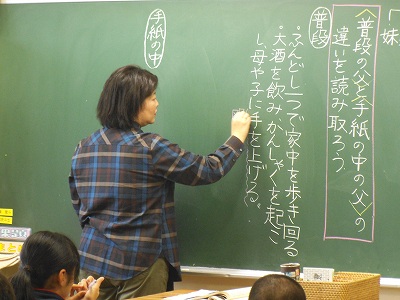 「
妹
〈普段の父〉と〈手紙の中の父〉の
違いを読み取ろう。
普段
・ふんどし一つで家中を歩き回る
・大酒を飲み、かんしゃくを起こ
し、母や子に手を上げる。
手紙の中